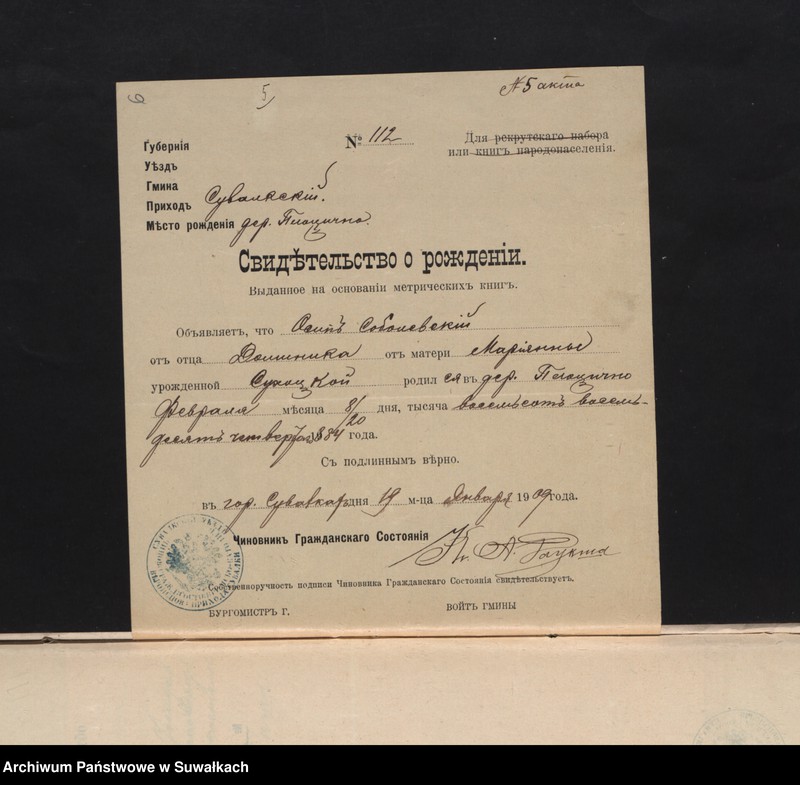 6
5
N 5 акта
Губернія
№ 112
Для рекрутскаго набора
или книгъ народонаселенія.
Уѣздъ
Гмина
Приходъ Сувалкскій.
Мѣсто рожденія дер. Плоцично.
Свидѣтельство о рожденіи.
Выданное на основаніи метрическихъ книгъ.
Объявляетъ, что Осипъ Соболевскій
отъ отца Доминика отъ матери Маріанны
урожденной Сухоцкой родился въ дер. Плоцично
Февраля мѣсяца 8/20 дня, тысяча восемьсотъ восемь-
десятъ четвертаго 1884 года.
Съ подлиннымъ вѣрно.
въ гор. Сувалкахъ дня 19 м-ца Января 1909 года.
Чиновникъ Гражданскаго Состоянія
Кс. А.
Собственноручность подписи Чиновника Гражданскаго Состоянія свидѣтельствуетъ.
БУРГОМИСТРЪ Г.
ВОЙТЪ ГМИНЫ
Archiwum Państwowe w Suwałkach